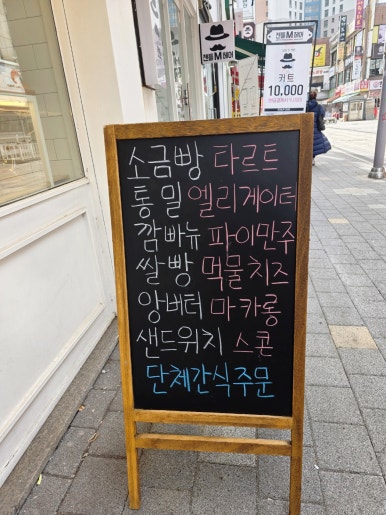 젠틀 M 헤어
젠틀 M 헤어
커트
10,000
소금빵 타르트
통밀 엘리게이터
깜빠뉴 파이만주
쌀빵 먹물치즈
앙버터 마카롱
샌드위치 스콘
단체간식주문